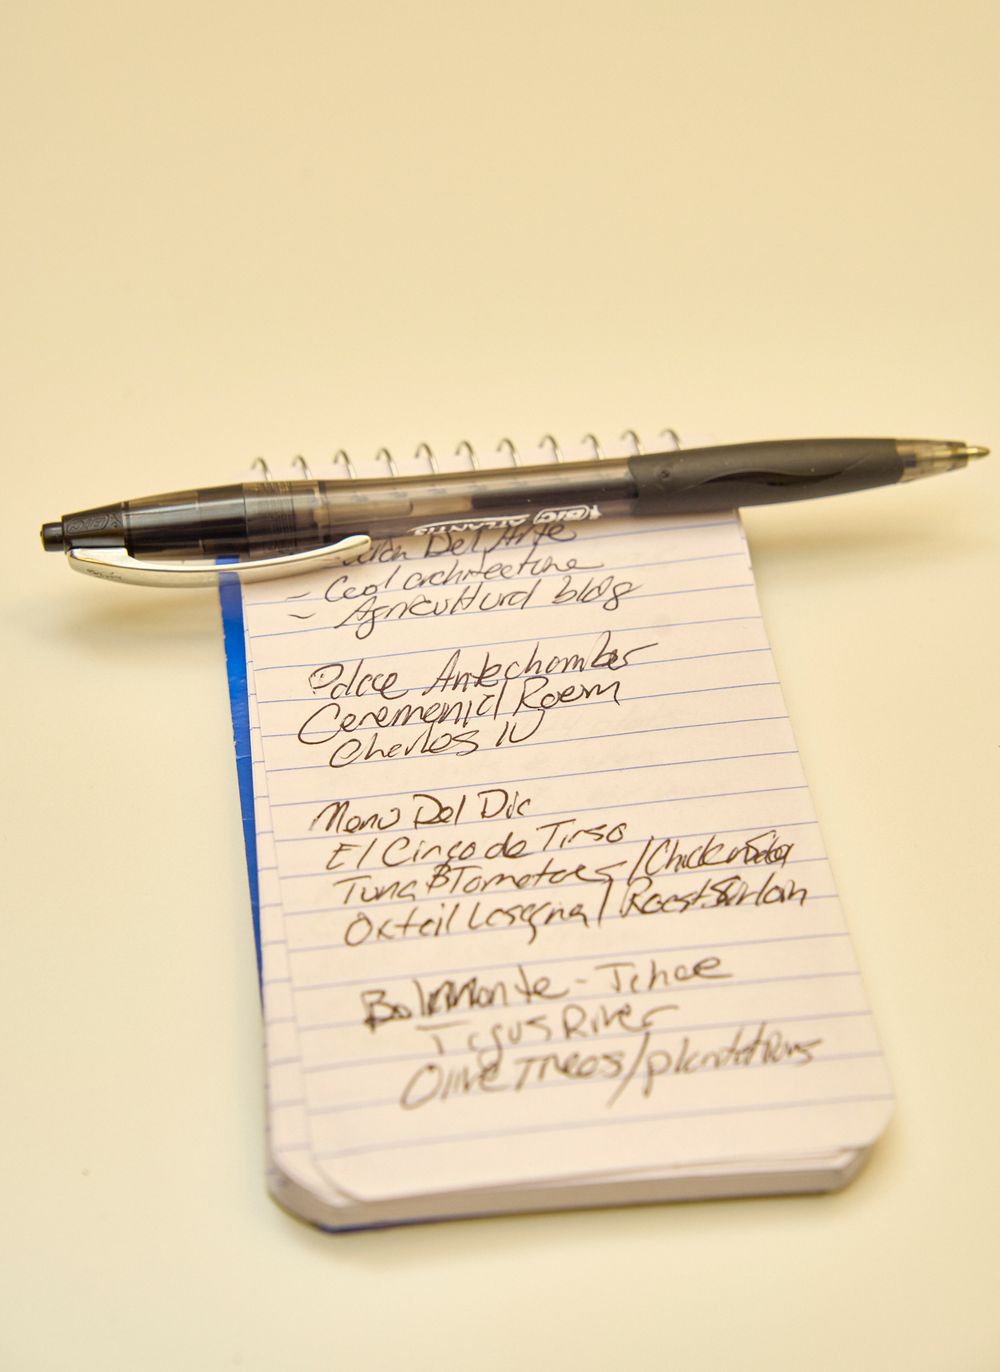 BIC ATLANTIS
Del Arte
- Cool architecture
- Agricultural bldg
Palace Antechamber
Ceremonial Room
Charles IV
Menu Del Dia
El Cinco de Tirso
Tuna & Tomatoes / Chicken
Oxtail Lasagna / Roast Sirloin
Tagus River
Olive Trees/plantations